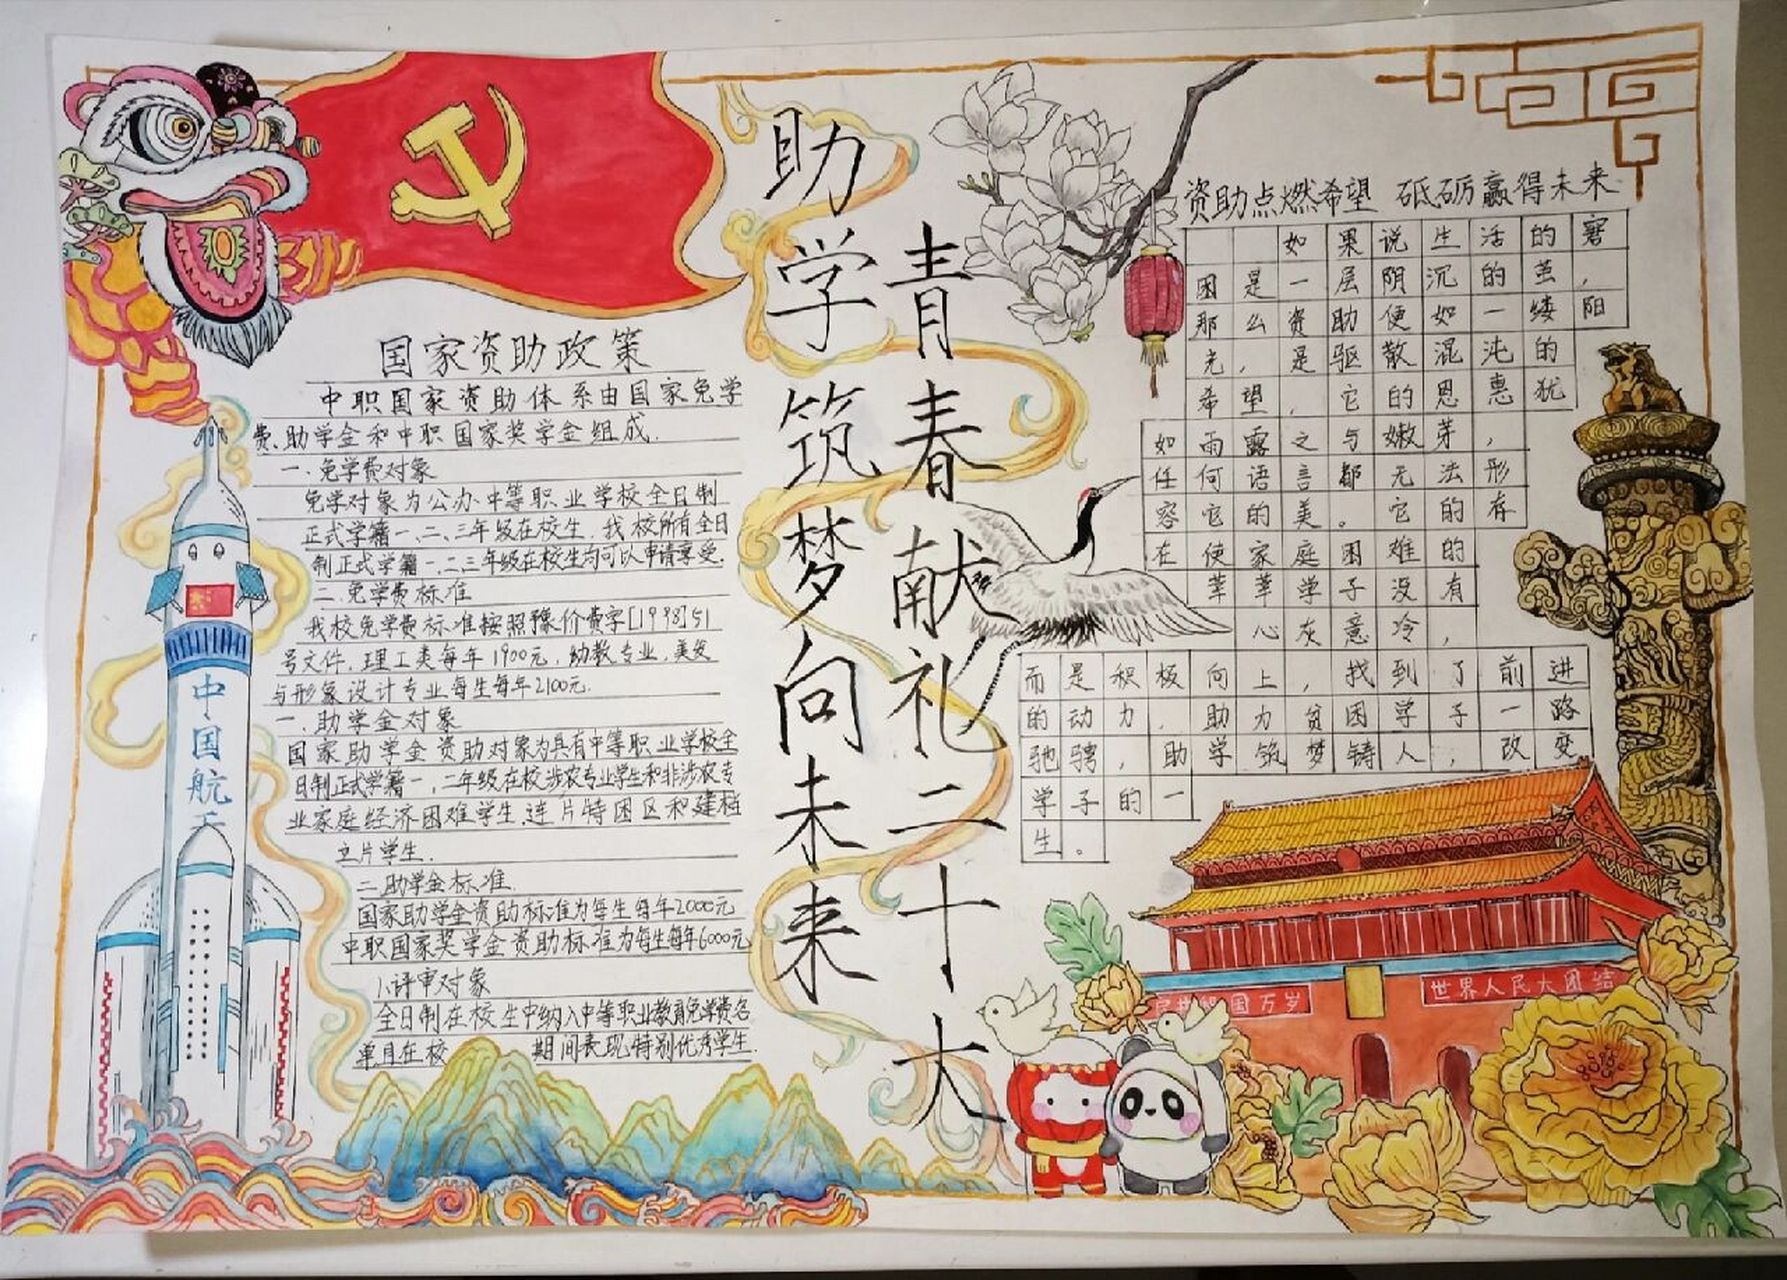 助学筑梦向未来
青春献礼二十大
国家资助政策
中职国家资助体系由国家免学
费、助学金和中职国家奖学金组成.
一.免学费对象
免学对象为公办中等职业学校全日制
正式学籍一、二、三年级在校生,我校所有全日
制正式学籍一、二三年级在校生均可以申请享受.
二.免学费标准
我校免学费标准按照豫价费字[1998]51
号文件,理工类每年1900元,幼教专业,美发
与形象设计专业每生每年2100元.
一.助学金对象
国家助学金资助对象为具有中等职业学校全
日制正式学籍一、二年级在校涉农专业学生和非涉农专
业家庭经济困难学生,连片特困区和建档
立片学生.
二.助学金标准.
国家助学金资助标准为每生每年2000元
中职国家奖学金资助标准为每生每年6000元
1.评审对象
全日制在校生中纳入中等职业教育免学费名
单且在校 期间表现特别优秀学生.
中国航天
资助点燃希望 砥砺赢得未来
如果说生活的窘
困是一层阴沉的茧,
那么资助便如一缕阳
光,是驱散混沌的
希望,它的恩惠犹
如雨露之与嫩芽,
任何语言都无法形
容它的美。它的存
在使家庭困难的
莘莘学子没有
心灰意冷,
而是积极向上,找到了前进
的动力,助力贫困学子一路
驰骋,助学筑梦铸人,改变
学子的一
生。
国万岁
世界人民大团结